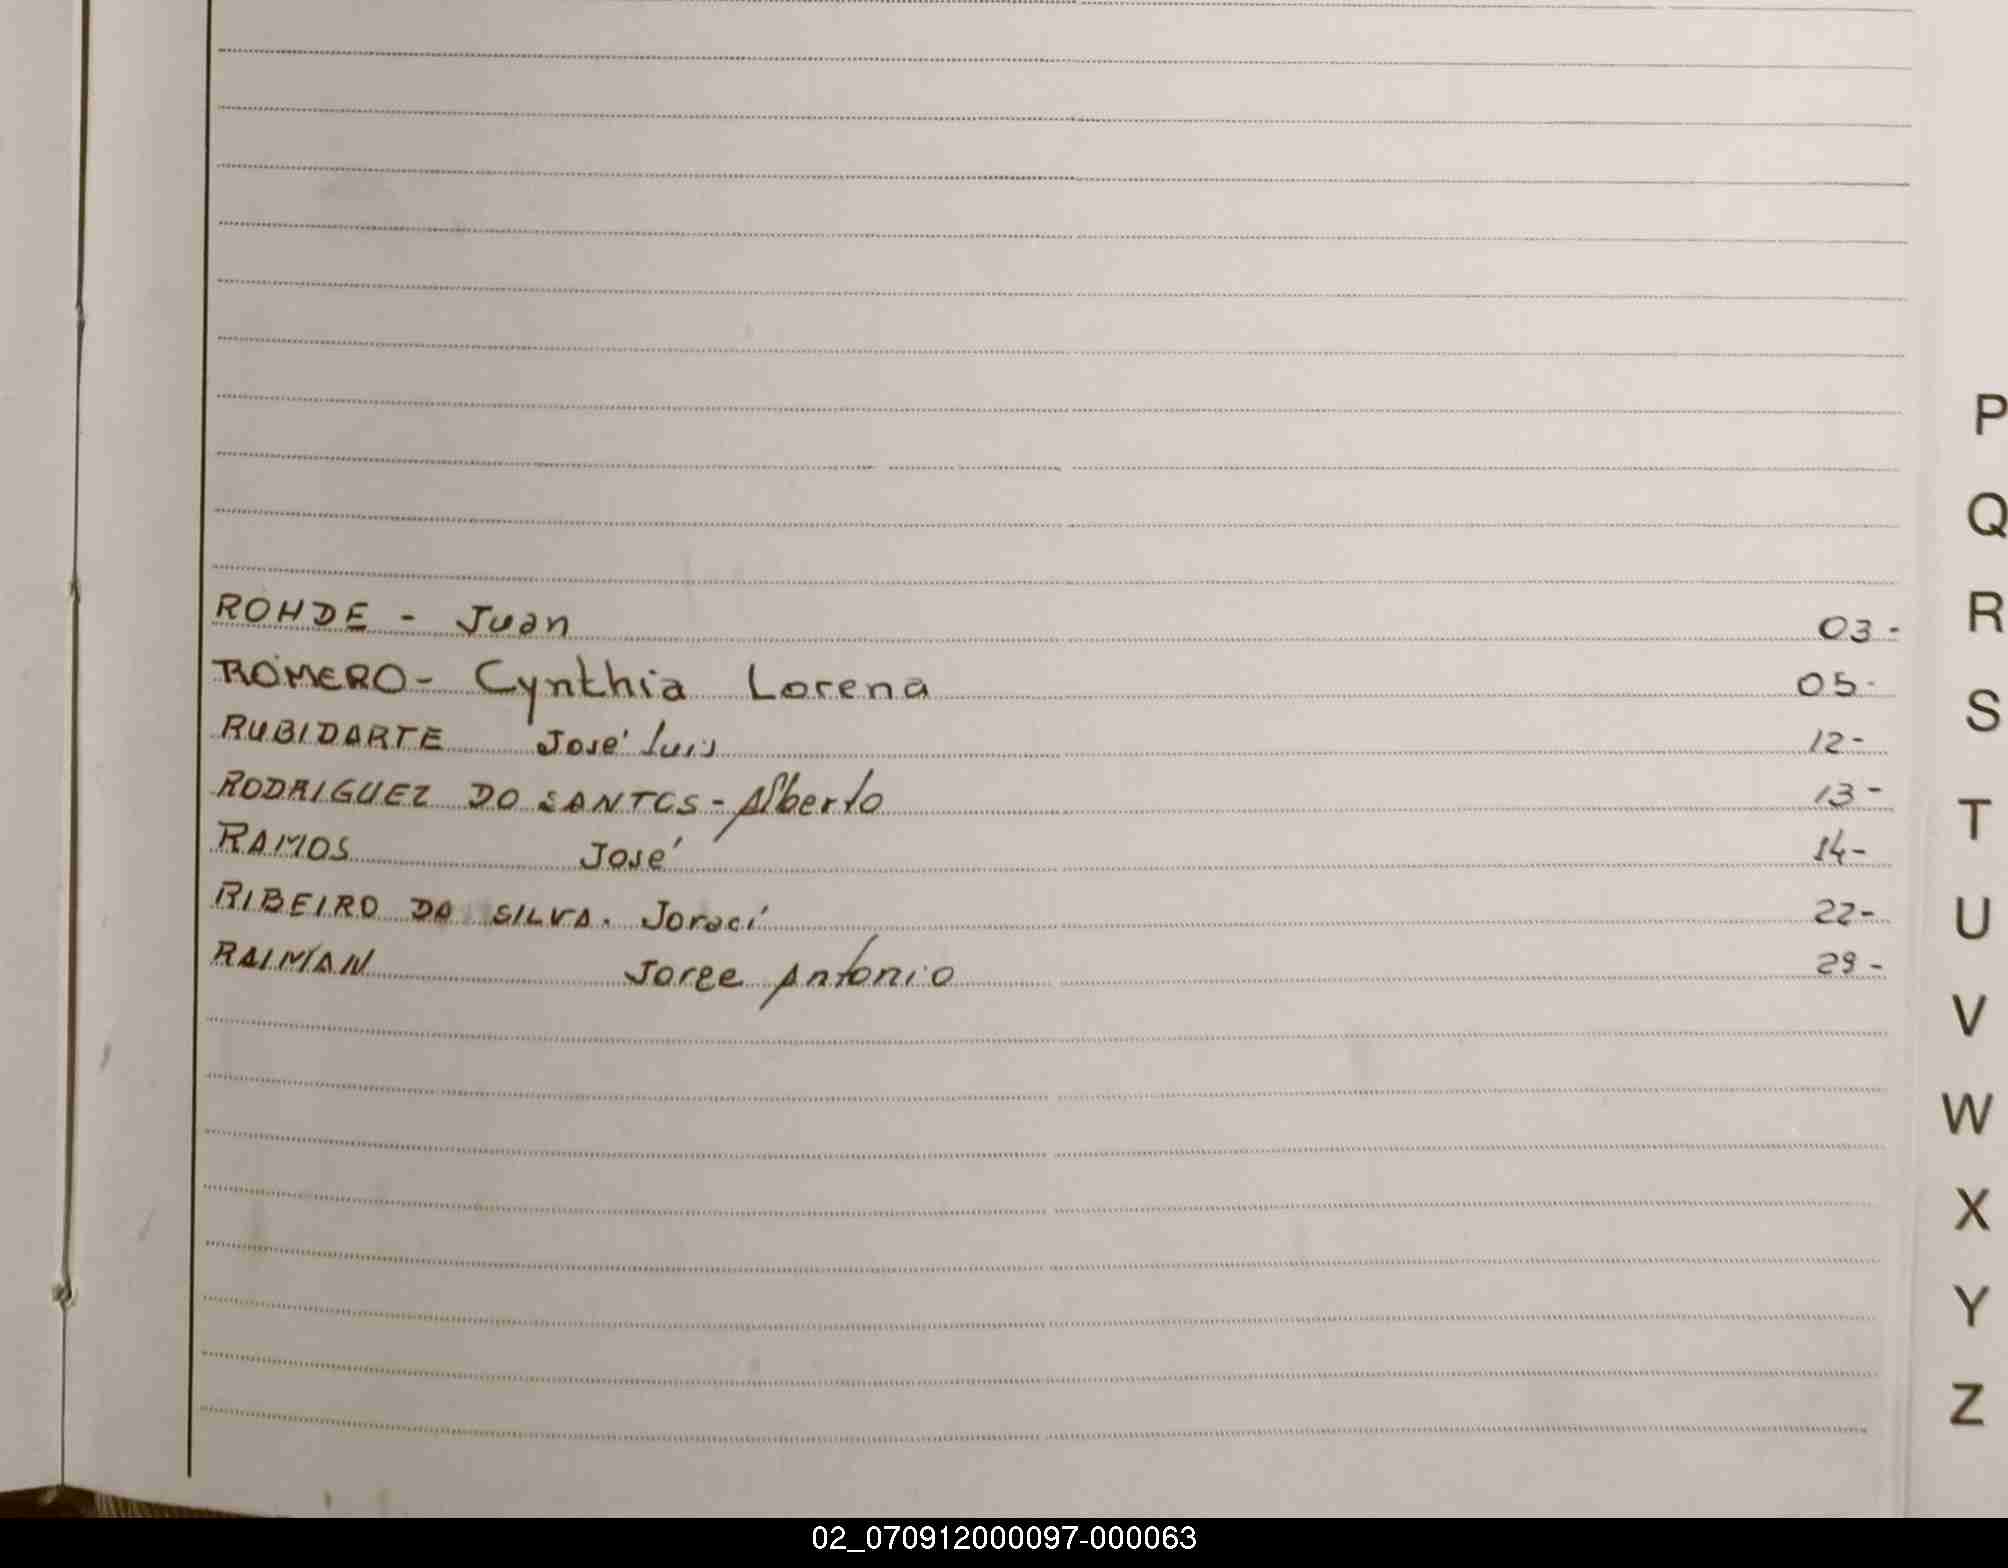 ROHDE - Juan 03-
ROMERO - Cynthia Lorena 05-
RUBIDARTE José Luis 12-
RODRIGUEZ DO SANTOS - Alberto 13-
RAMOS José 14-
RIBEIRO DA SILVA. Joraci 22-
RAIMAN Jorge Antonio 29-
P
Q
R
S
T
U
V
W
X
Y
Z
02_070912000097-000063